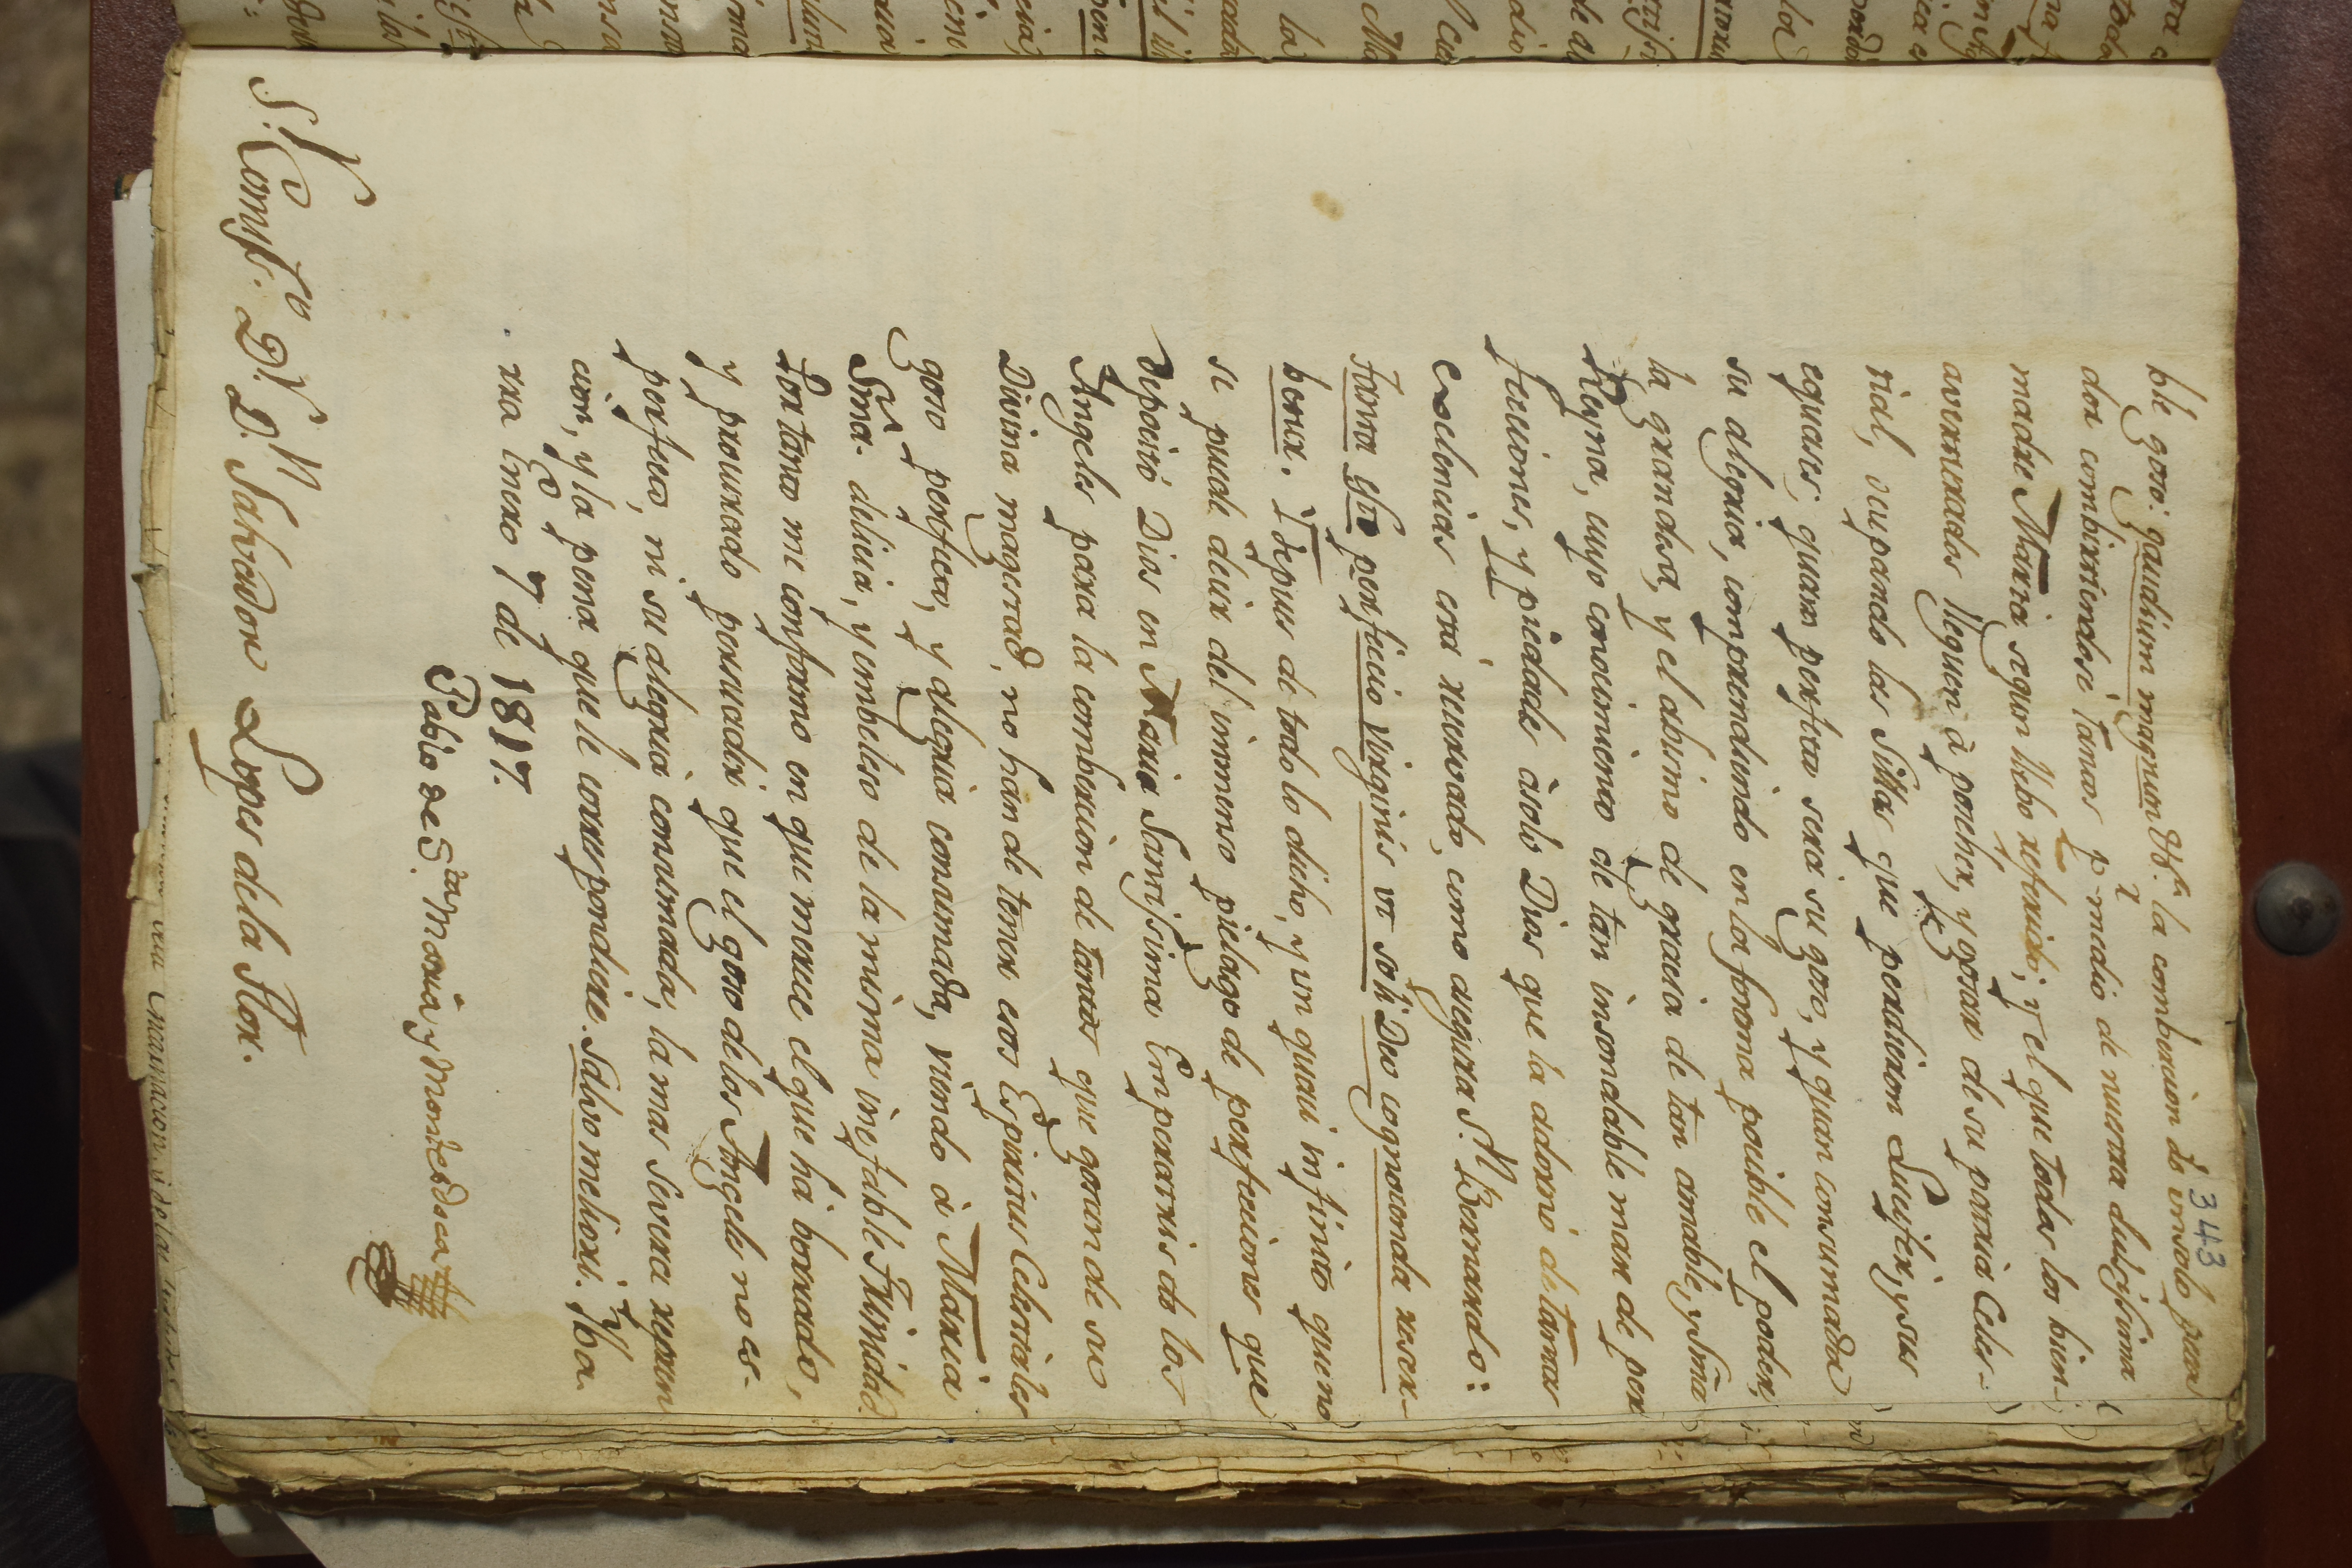 343
ble gozo: gaudium magnum &a. la combercion de un solo peca
dor combirtiendose tantos pr. medio de nuestra dulcissima
madre Maria segun llebo referido; y el que todos los bien-
aventurados lleguen à poseher, y gozar de su patria Celes-
tial, ocupando las Sillas que perdieron Lucifer, y sus
equases; quan perfeto sera su gozo, y quan consumada
su alegria, comprendiendo en la forma posible el poder,
la grandesa, y el abismo de gracia de tan amable, y Sma.
Reyna, cuyo conosimiento de tan insondable mar de per
fecciones, y piedade àsolo Dios que la adornó de tantas
excelencias està reservado, como asegura S. Bernardo:
Tanta est perfectio Virginis ut soli Deo cognocenda reser-
betur. Y depues de todo lo dicho, y un quasi infinito que no
se puede decir del inmenso pielago de perfecciones que
depositó Dios en Maria Santissima Emperatris de los
Angeles para la combercion de tantos que gozan de su
Divina magestad, no han de tener esos Espiritus Celestiales
gozo perfecto, y alegria consumada, viendo à Maria
Sma. delicia, y embeleso de la misma inefable Trinidad
Por tanto me conformo en que merece el que há borrado,
y procurado persuadir que el gozo de los Angeles no es-
perfecto, ni su alegria consumada, la mas severa repren
cion, y la pena que le correspondiere. Salvo meliori. Iba.
rra enero 7 de 1817.
Pablo de Sta. Maria, y Montesdeoca
S. Comisso. Dr. Dn. Salvador Lopes de la Flor.